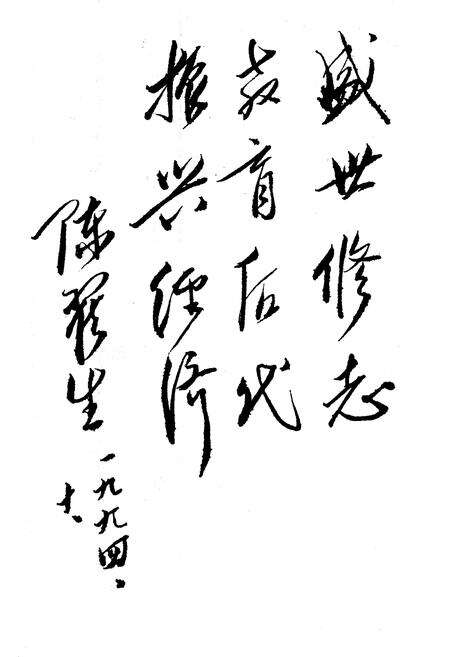 盛世修志
教育后代
振兴经济
陈翠生
一九九四、
十、